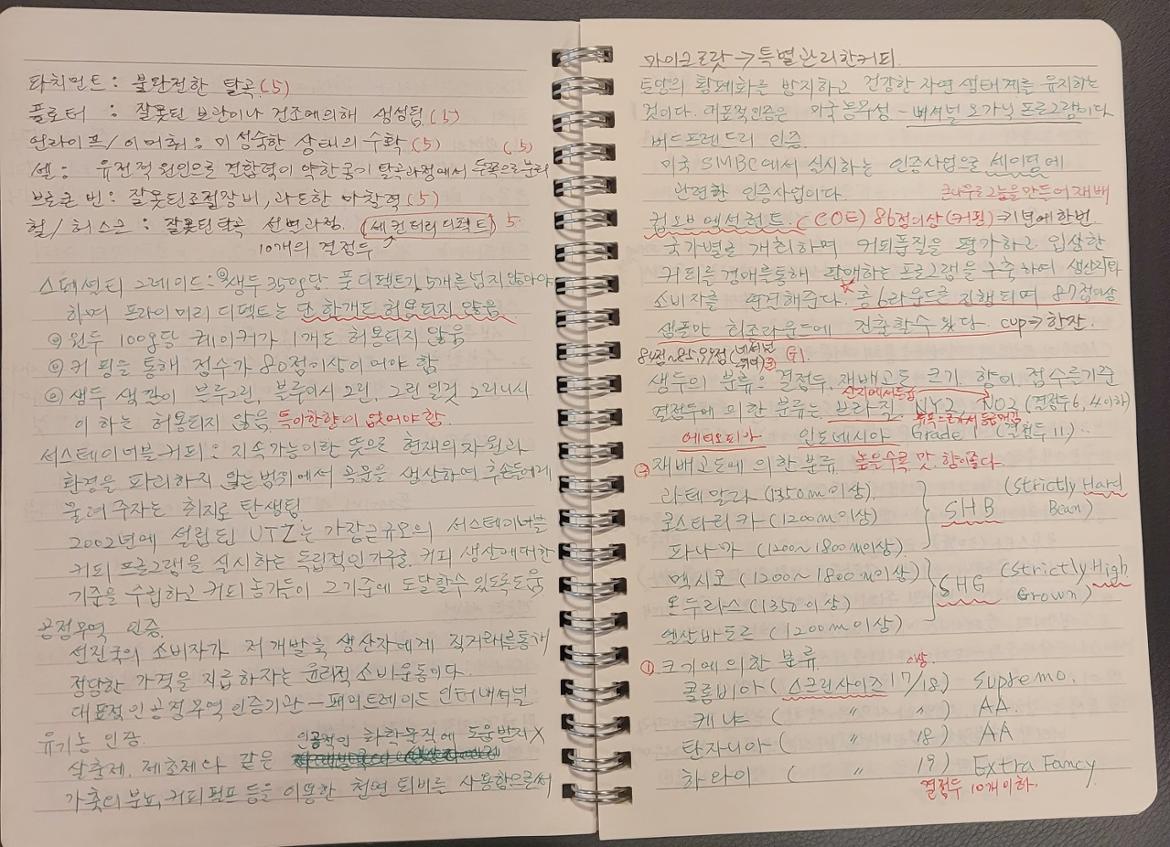 파치먼트 : 불완전한 탈곡 (5)
플로터 : 잘못된 보관이나 건조에의해 생성됨 (5)
언라이프/이머춰 : 미성숙한 상태의 수확 (5) (5)
쉘 : 유전적 원인으로 결합력이 약한 콩이 탈곡과정에서 두쪽으로 분리
브로큰 빈 : 잘못된 조절장비, 과도한 마찰력 (5)
헐/허스크 : 잘못된 탈곡 선별과정. (세컨더리디펙트) 5
10개의 결점두
스페셜티 그레이드 : 생두 350g당 풀 디펙트가 5개를 넘지 않아야
하며 프라이머리 디펙트는 단 한개도 허용되지 않음
원두 100g당 퀘이커가 1개도 허용되지 않음
커핑을 통해 점수가 80점이상이어야 함
생두 색깔이 블루그린, 블루이시 그린, 그린 일것 그리니시
이하는 허용되지 않음 특이한향이 없어야함.
서스테이너블 커피 : 지속가능이란 뜻으로 현재의 자원과
환경을 파괴하지 않는 범위에서 곡물을 생산하여 후손에게
물려주자는 취지로 탄생됨
2002년에 설립된 UTZ는 가장큰규모의 서스테이너블
커피 프로그램을 실시하는 독립적인 기구로 커피 생산에대한
기준을 수립하고 커피농가들이 그기준에 도달할수 있도록도움
공정무역 인증.
선진국의 소비자가 저개발국 생산자에게 직거래를통해
정당한 가격을 지급하자는 윤리적 소비운동이다.
대표적인 공정무역 인증기관 - 페어트레이드 인터내셔널
유기농 인증. 인공적인 화학물질에 도움받지X
살충제, 제초제나 같은
가축의 분뇨, 커피펄프 등을 이용한 천연 퇴비를 사용함으로써
마이크로랏 → 특별관리한커피.
토양의 황폐화를 방지하고 건강한 자연 생태계를 유지하는
것이다. 대표적인증은 미국농무성 - 내셔널 오가닉 프로그램이다
버드프렌드리 인증.
미국 SMBC에서 실시하는 인증사업으로 셰이딩에
관련한 인증사업이다. 큰나무로그늘을만들어재배
컵오브엑설런트. (COE) 86점이상(커핑) 1년에한번.
국가별로 개최하며 커피품질을 평가하고 입상한
커피를 경매를통해 판매하는 프로그램을 구축하여 생산자와
소비자를 연결해준다. 총6라운드로 진행되며 87점이상
샘플만 최종라운드에 진출할수 있다. cup → 한잔.
G1.
생두의 분류는 결점두, 재배고도 크기, 향미, 점수를기준
결점두에 의한 분류는 브라질 NY2, NO2 (결점두6, 4이하)
에티오피아 인도네시아 Grade 1 (결점두 11)..
재배고도에 의한 분류 높을수록 맛, 향이좋다
과테말라 (1350m이상) (Strictly Hard
코스타리카 (1200m이상) SHB Bean)
파나마 (1200~1800m이상)
멕시코 (1200~1800m이상) (Strictly High
온두라스 (1350이상) SHG Grown)
엘살바도르 (1200m이상)
① 크기에의한 분류 이상.
콜롬비아 (스크린사이즈 17/18) Supremo.
케냐 ( 〃 〃 ) AA.
탄자니아 ( 〃 18) AA
하와이 ( 〃 19) Extra Fancy
결점두 10개이하.